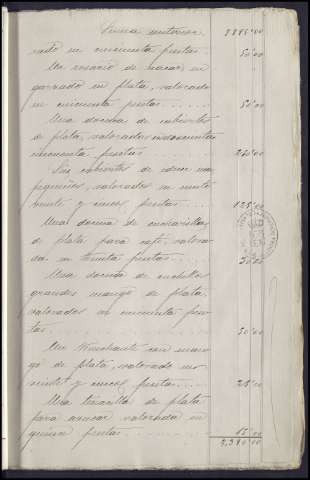 Suma anterior 2885'00
rado en cincuenta pesetas. 50'00
Un rosario de nacar en
garzado en plata, valorado
en cincuenta pesetas....... 50'00
Una docena de cubiertos
de plata, valorados en doscientas
cincuenta pesetas......... 250'00
Seis cubiertos de idem mas
pequeños, valorados en ciento
veinte y cinco pesetas..... 125'00
Una docena de cucharillas
de plata para café, valora-
da en treinta pesetas..... 30'00
Una docena de cuchillos
grandes mango de plata,
valorados en cincuenta pese-
tas............ 50'00
Un trinchante con man-
go de plata, valorado en
veinte y cinco pesetas..... 25'00
Una tenacilla de plata
para azucar valorada en
quince pesetas..........